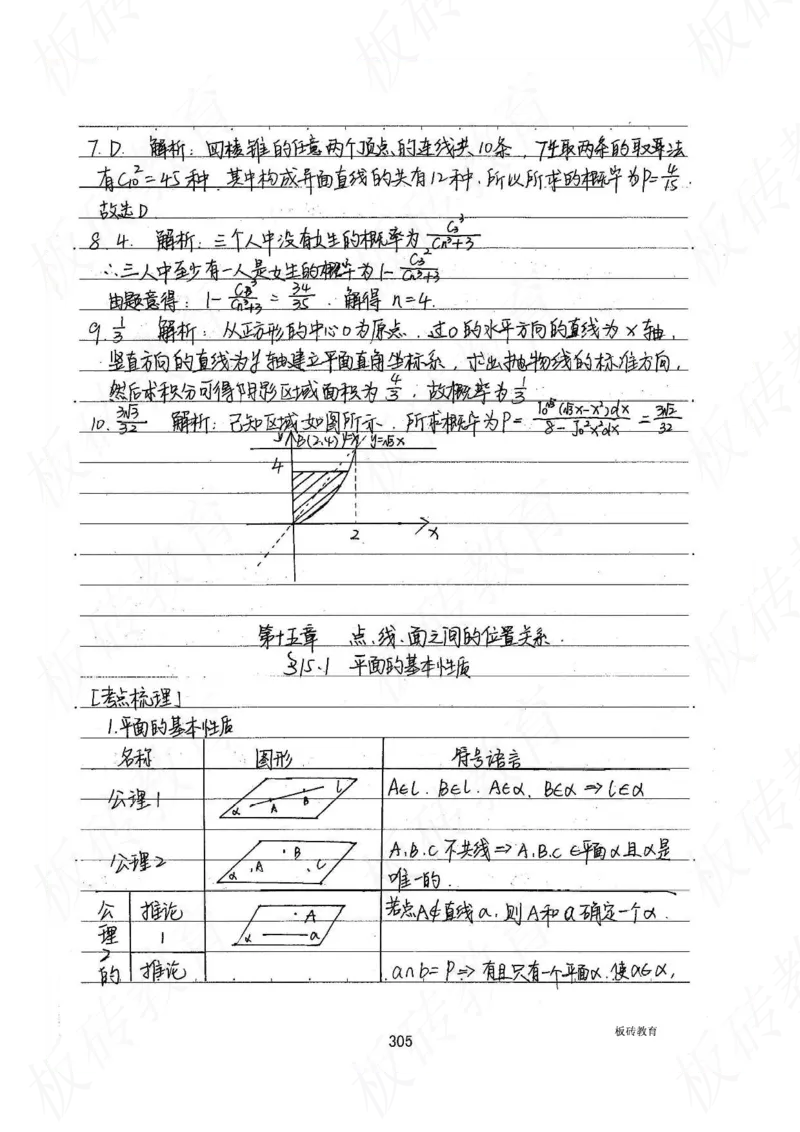 7. D. 解析：四棱锥的任意两个顶点的连线共10条，任取两条的取法
有C₁₀²=45种，其中构成异面直线的共有12种，所以所求的概率为P=4/15.
故选D
8. 4. 解析：三个人中没有女生的概率为 C₃³/Cₙ³+3
∴三人中至少有一人是女生的概率为1-C₃²/Cₙ³+3
由题意得：1- = 34/35. 解得 n=4.
9. 1/3 解析：以正方形的中心O为原点，过O的水平方向的直线为x轴，
竖直方向的直线为y轴建立平面直角坐标系，求出抛物线的标准方向，
然后求积分可得阴影区域面积为4/3，故概率为1/3
10. 3√3/32 解析：已知区域如图所示，所求概率为P= ∫₀^√3(√3x-x²)dx/8-∫₀²x²dx = 3√3/32
y B(2,4) y=√3x
4
2 x
第十五章 点、线、面之间的位置关系.
§15.1 平面的基本性质
[考点梳理]
1.平面的基本性质
名称 图形 符号语言
公理1 α A B l A∈l. B∈l. A∈α. B∈α ⇒ l∈α
公理2 α .A .B .C A.B.C 不共线⇒A.B.C∈平面α且α是
唯一的.
公理2的 推论1 α .A a 若点A∉直线a，则A和a确定一个α.
推论 a∩b=P⇒有且只有一个平面α.使a∈α,
305
板砖教育